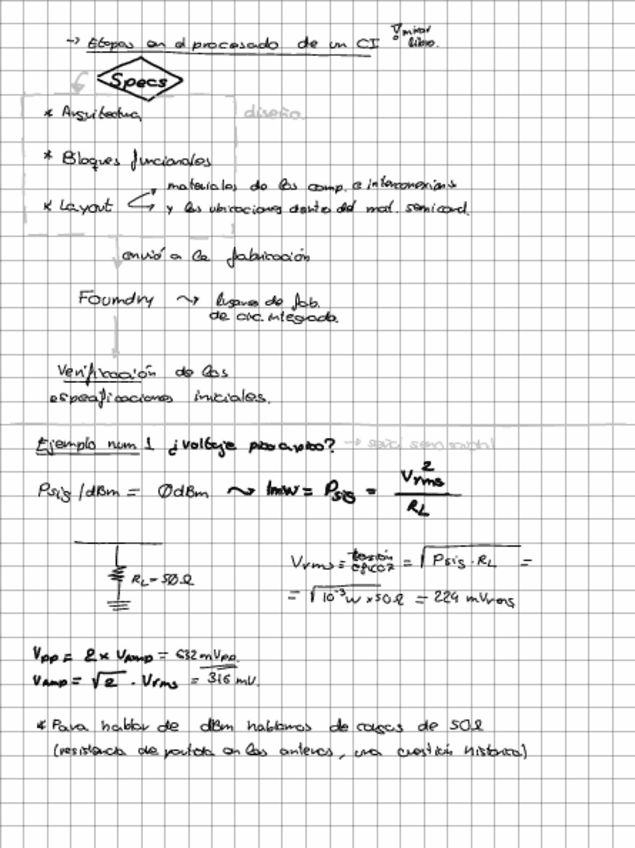 → Etapas en el procesado de un CI ∇ mirar libro.
Specs
* Arquitectura diseño.
* Bloques funcionales
materiales de los comp. e interconexions
* Layout y las ubicaciones dentro del mat. semicond.
envió a la fabricación
Foundry ⤳ lugares de fab.
de circ. integrado.
Verificación de las
especificaciones iniciales.
Ejemplo num 1 ¿Voltaje pico a pico? → señal senoidal
Psig /dBm = 0dBm ⤳ 1mW = Psig = Vrms² / RL
RL = 50Ω
Vrms = tensión eficaz = √Psig · RL =
= √10⁻³W x 50Ω = 224 mVrms
Vpp = 2 x Vamp = 632 mVpp.
Vamp = √2 · Vrms = 316 mV.
* Para hablar de dBm hablamos de cargas de 50Ω
(resistencia de partida en las antenas, una cuestión histórica)